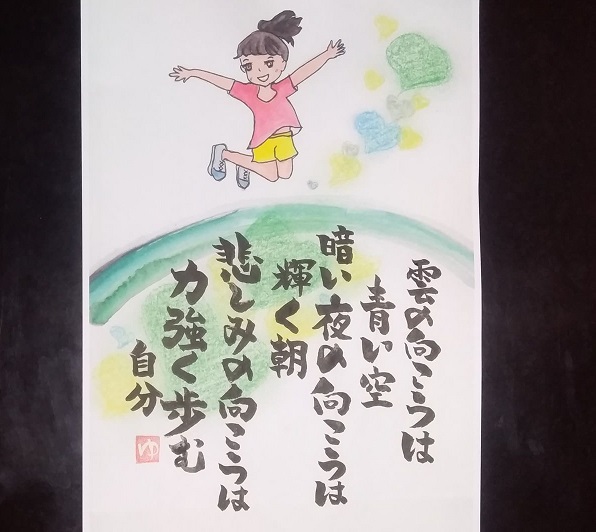 雲の向こうは
青い空
暗い夜の向こうは
輝く朝
悲しみの向こうは
力強く歩む
自分
ゆ